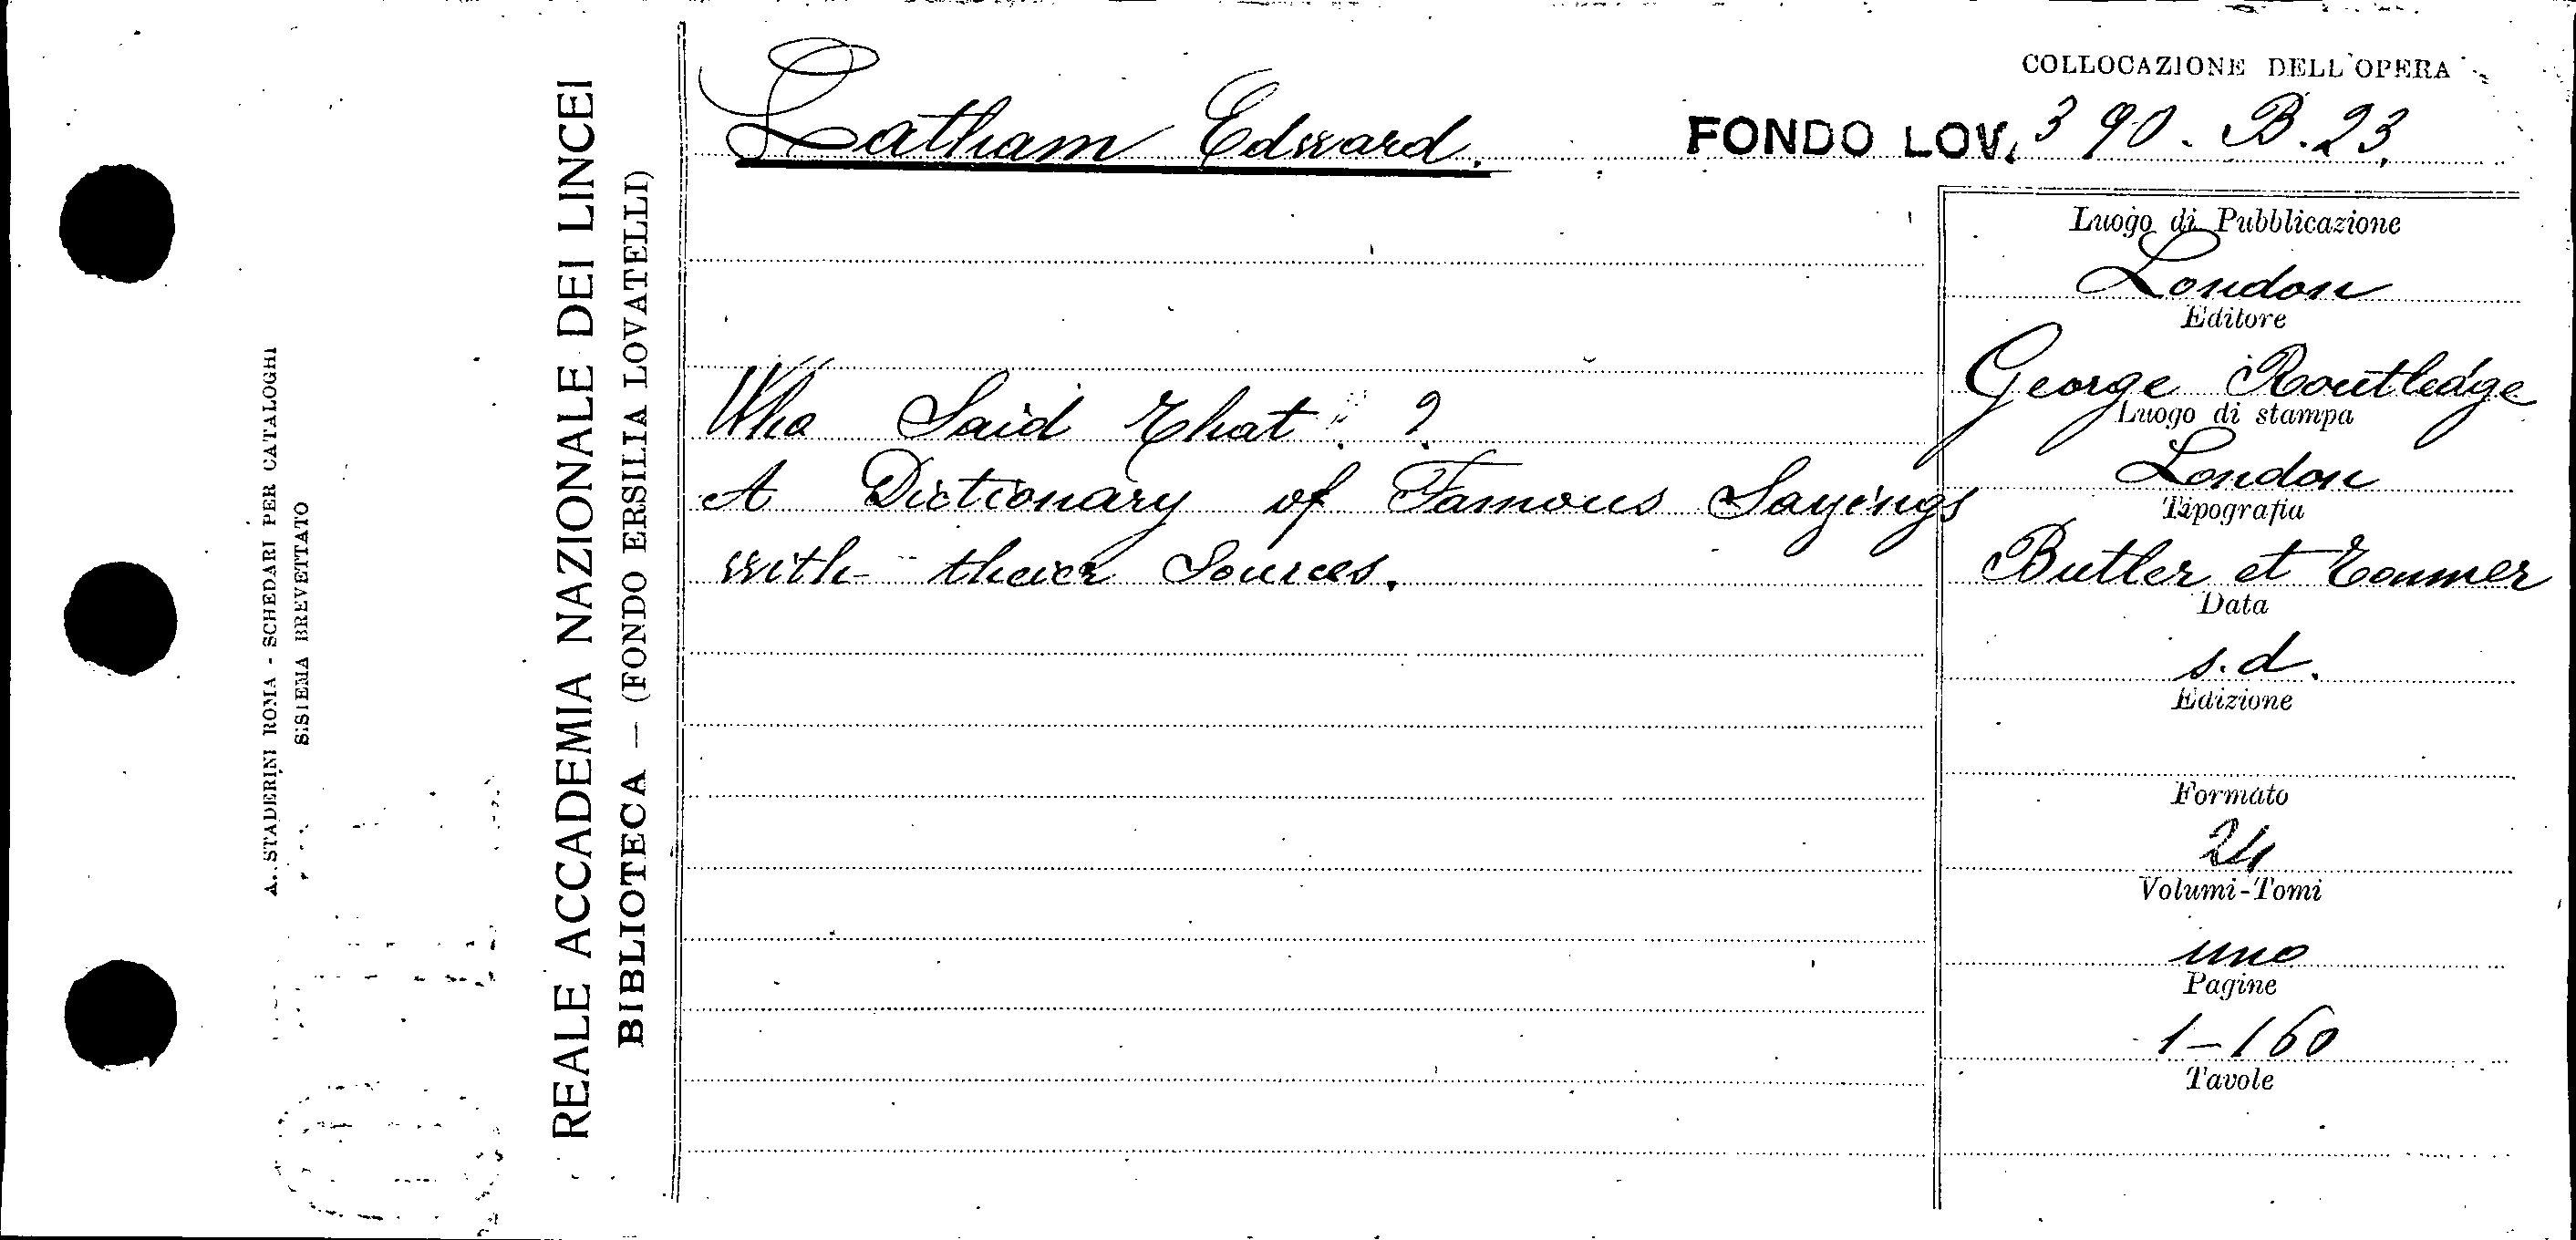 COLLOCAZIONE DELL'OPERA
Latham Edward.
FONDO LOV. 390. B. 23
Who Said That ?
A Dictionary of Famous Sayings
with their Sources.
Luogo di Pubblicazione
London
Editore
George Routledge
Luogo di stampa
London
Tipografia
Butler et
Data
s.d.
Edizione
Formato
24
Volumi-Tomi
uno
Pagine
1-160
Tavole
REALE ACCADEMIA NAZIONALE DEI LINCEI
BIBLIOTECA — (FONDO ERSILIA LOVATELLI)
A. STADERINI ROMA - SCHEDARI PER CATALOGHI
SISTEMA BREVETTATO